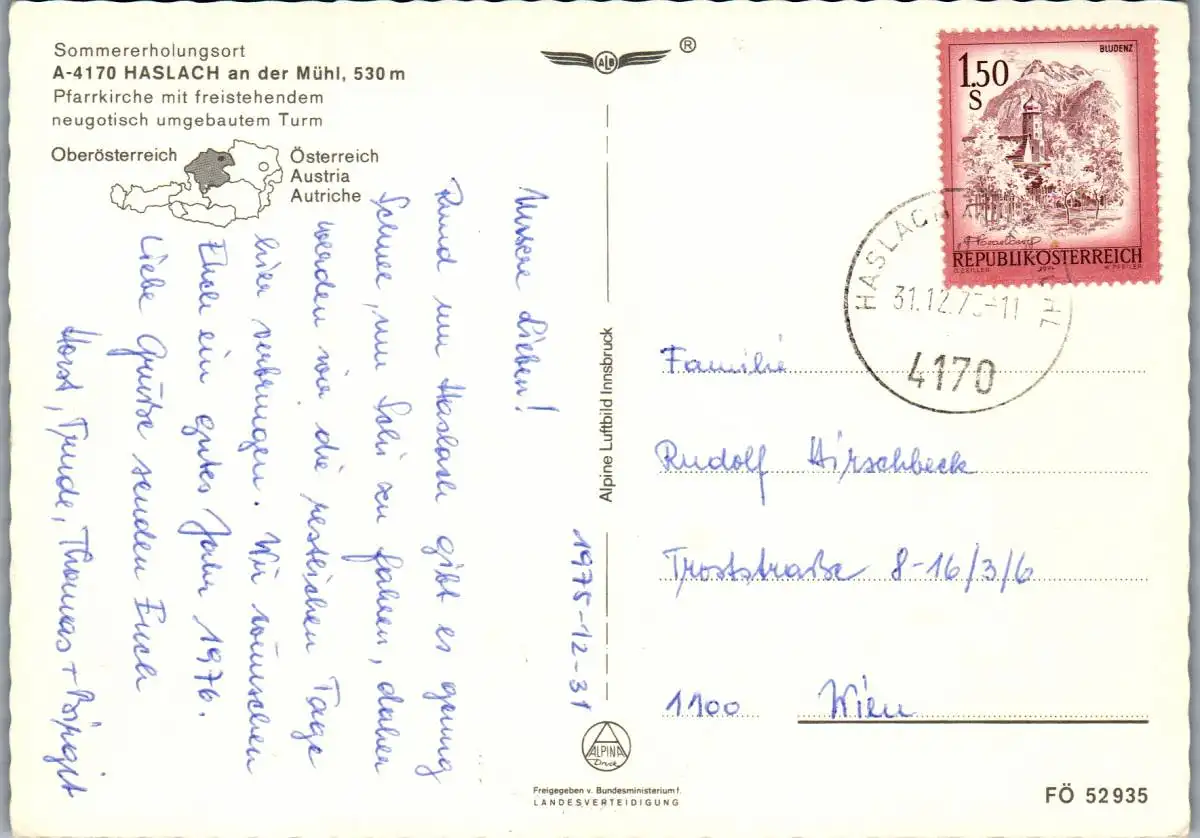 Sommererholungsort
A-4170 HASLACH an der Mühl, 530 m
Pfarrkirche mit freistehendem
neugotisch umgebautem Turm
Oberösterreich
Österreich
Austria
Autriche
ALB
®
1.50
S
BLUDENZ
REPUBLIK ÖSTERREICH
HASLACH AN DER
31.12.75-11
4170
Unsere Lieben!
Rund um Haslach gibt es genung
Schnee, um Schi zu fahren, daher
werden wir die restlichen Tage
hier verbringen. Wir wünschen
Euch ein gutes Jahr 1976.
Liebe Grüße senden Euch
Horst, Trude, Thomas + Birgit
1975-12-31
Alpine Luftbild Innsbruck
Familie
Rudolf Hirschbeck
Troststraße 8-16/3/6
1100 Wien
ALPINA
Druck
Freigegeben v. Bundesministerium f.
LANDESVERTEIDIGUNG
FÖ 52935